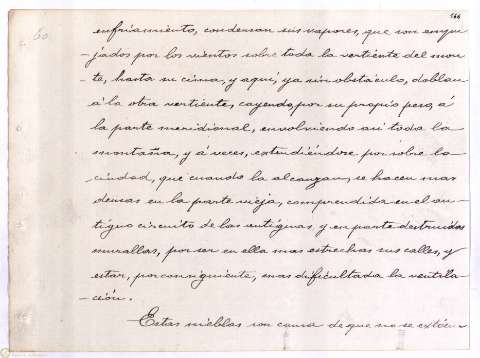 166
60
enfriamiento, condensan sus vapores, que son empu-
-jados por los vientos sobre toda la vertiente del mon-
-te, hasta su cima, y aquí, ya sin obstáculo, doblan
á la otra vertiente, cayendo, por su propio peso, á
la parte meridional, envolviendo así toda la
montaña, y á veces, extendiéndose por sobre la
ciudad, que cuando la alcanzan, se hacen mas
densas en la parte vieja, comprendida en el an-
tiguo circuito de las antiguas y en parte destruidas
murallas, por ser en ella mas estrechas sus calles, y
estar, por consiguiente, mas dificultada la ventila-
-ción.
Estas nieblas son causa de que no se extien-